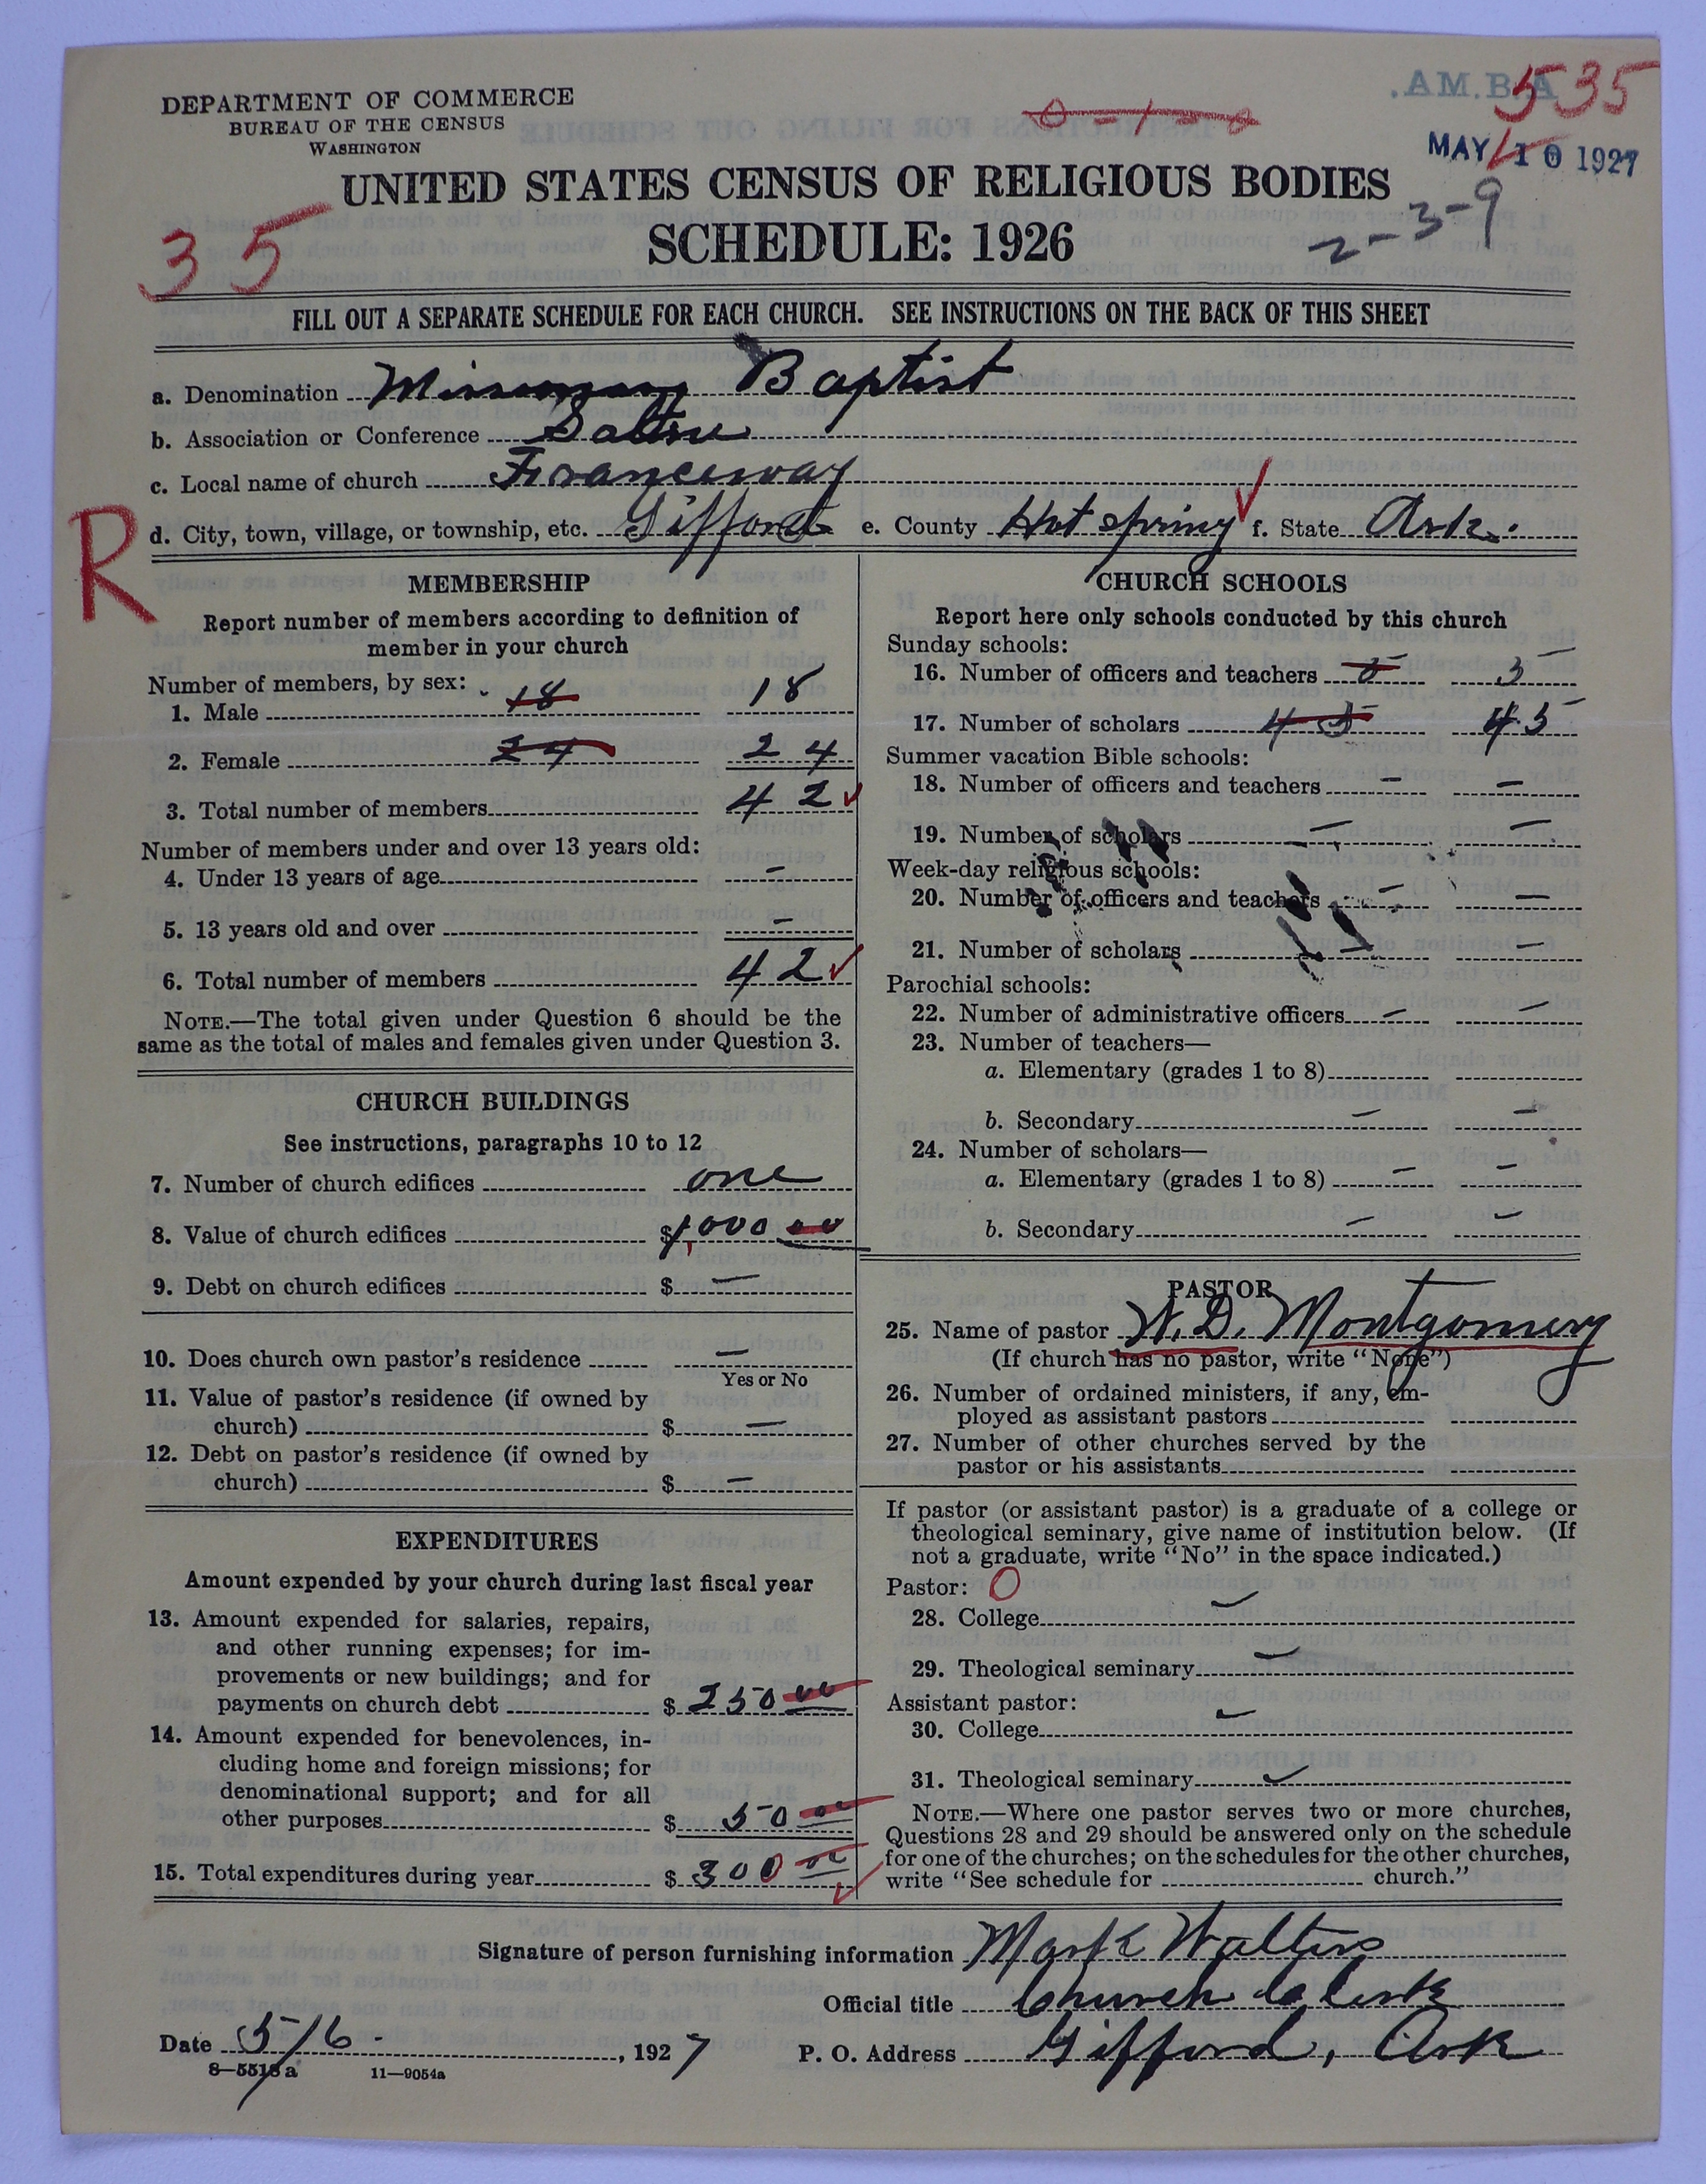 DEPARTMENT OF COMMERCE
BUREAU OF THE CENSUS
WASHINGTON
A.B.MA.
535
0-1-0
MAY 10 1927
UNITED STATES CENSUS OF RELIGIOUS BODIES
SCHEDULE: 1926
2-3-9
35
FILL OUT A SEPARATE SCHEDULE FOR EACH CHURCH. SEE INSTRUCTIONS ON THE BACK OF THIS SHEET
a. Denomination Missionary Baptist
b. Association or Conference Saline
c. Local name of church Franceway
d. City, town, village, or township, etc. Gifford e. County Hot Spring f. State Ark.
R
MEMBERSHIP
Report number of members according to definition of
member in your church
Number of members, by sex:
1. Male 18 18
2. Female 24 24
3. Total number of members 42
Number of members under and over 13 years old:
4. Under 13 years of age —
5. 13 years old and over —
6. Total number of members 42
NOTE.—The total given under Question 6 should be the
same as the total of males and females given under Question 3.
CHURCH BUILDINGS
See instructions, paragraphs 10 to 12
7. Number of church edifices one
8. Value of church edifices $1,000 00
9. Debt on church edifices $ —
10. Does church own pastor's residence —
Yes or No
11. Value of pastor's residence (if owned by
church) $ —
12. Debt on pastor's residence (if owned by
church) $ —
EXPENDITURES
Amount expended by your church during last fiscal year
13. Amount expended for salaries, repairs,
and other running expenses; for im-
provements or new buildings; and for
payments on church debt $ 250 00
14. Amount expended for benevolences, in-
cluding home and foreign missions; for
denominational support; and for all
other purposes $ 50 00
15. Total expenditures during year $ 300 00
CHURCH SCHOOLS
Report here only schools conducted by this church
Sunday schools:
16. Number of officers and teachers 5 5
17. Number of scholars 45 45
Summer vacation Bible schools:
18. Number of officers and teachers — —
19. Number of scholars — —
Week-day religious schools:
20. Number of officers and teachers — —
21. Number of scholars — —
Parochial schools:
22. Number of administrative officers — —
23. Number of teachers—
a. Elementary (grades 1 to 8)
b. Secondary — —
24. Number of scholars—
a. Elementary (grades 1 to 8) — —
b. Secondary — —
PASTOR
25. Name of pastor W. D. Montgomery
(If church has no pastor, write "None")
26. Number of ordained ministers, if any, em-
ployed as assistant pastors
27. Number of other churches served by the
pastor or his assistants
If pastor (or assistant pastor) is a graduate of a college or
theological seminary, give name of institution below. (If
not a graduate, write "No" in the space indicated.)
Pastor: 0
28. College —
29. Theological seminary —
Assistant pastor:
30. College —
31. Theological seminary —
NOTE.—Where one pastor serves two or more churches,
Questions 28 and 29 should be answered only on the schedule
for one of the churches; on the schedules for the other churches,
write "See schedule for church."
Signature of person furnishing information Mark Walters
Official title Church Clerk
Date 5/6 , 1927 P. O. Address Gifford, Ark
8—5518a 11—9054a